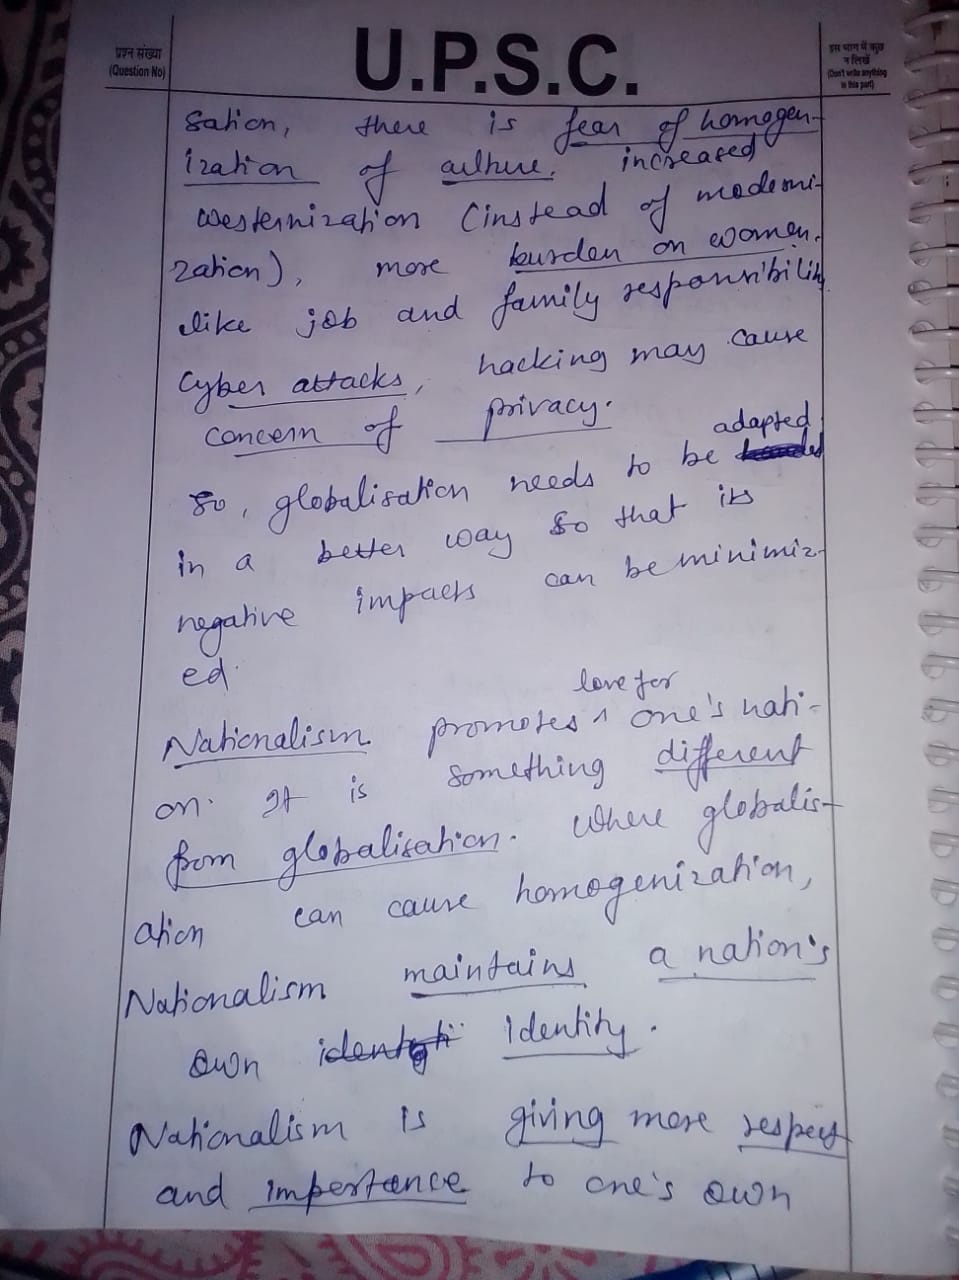 प्रश्न संख्या
(Question No)
U.P.S.C.
इस भाग में कुछ
न लिखें
(Don't write anything
in this part)
sation, there is fear of homogen-
ization of culture, increased
westernization (instead of moderni-
zation), more burden on women.
like job and family responsibility
Cyber attacks, hacking may cause
concern of privacy.
So, globalisation needs to be adapted
in a better way so that its
negative impacts can be minimiz-
ed.
Nationalism promotes ^ love for one's nati-
on. It is something different
from globalisation. Where globalis-
ation can cause homogenization,
Nationalism maintains a nation's
own identity.
Nationalism is giving more respect
and importance to one's own